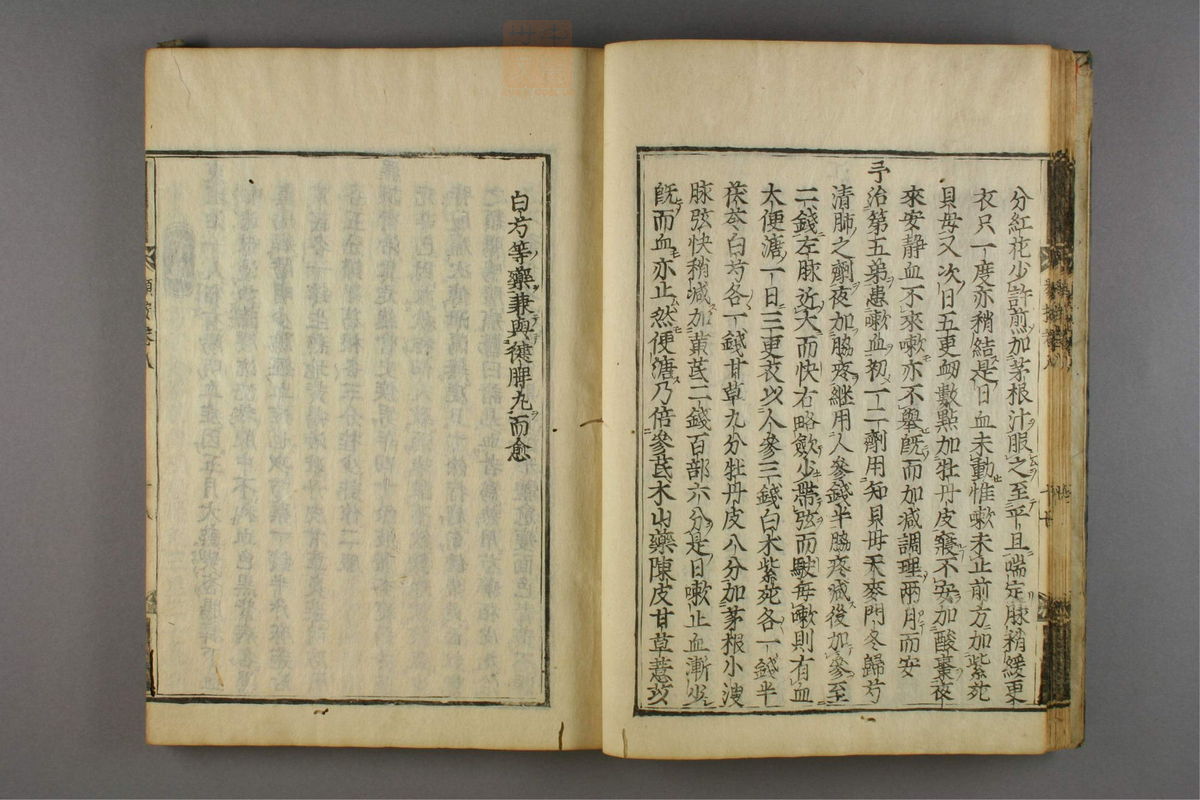 分紅花少許煎加茅根汁服之至平旦喘定脉稍緩更
衣只一度亦稍結是日血未動惟嗽未止前方加紫苑
貝母又次日五更衂數點加牡丹皮寢不安加酸棗夜
來安静血不來嗽亦不舉既而加減調理兩月而安
予治第五弟患嗽血初一二劑用知貝母天麥門冬歸芍
清肺之劑夜加脇疼継用人參錢半脇疼减後加參至
二錢左脉近大而快右略歛少帶弦而駛每嗽則有血
大便溏一日三更衣以人參三錢白术紫苑各一錢半
茯苓白芍各一錢甘草九分牡丹皮八分加茅根小溲
脉弦快稍减加黄芪二錢百部六分是日嗽止血漸少
既而血亦止然便溏乃倍參芪术山藥陳皮甘草薏苡
白芍等藥兼與健脾丸而愈